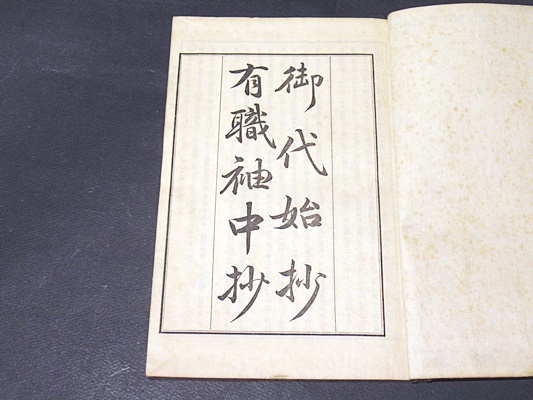 御代始抄
有職袖中抄